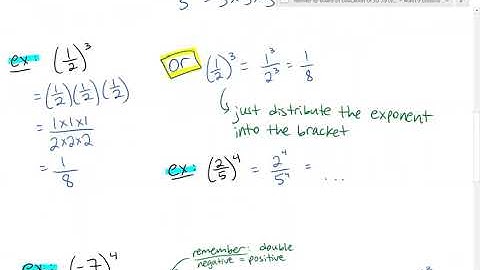 ex: (1/2)³
= (1/2)(1/2)(1/2)
= 1x1x1/2x2x2
= 1/8
or (1/2)³ = 1³/2³ = 1/8
just distribute the exponent
into the bracket
ex: (2/5)⁴ = 2⁴/5⁴ = ...
ex: (-7)⁴
remember: double
negative = positive